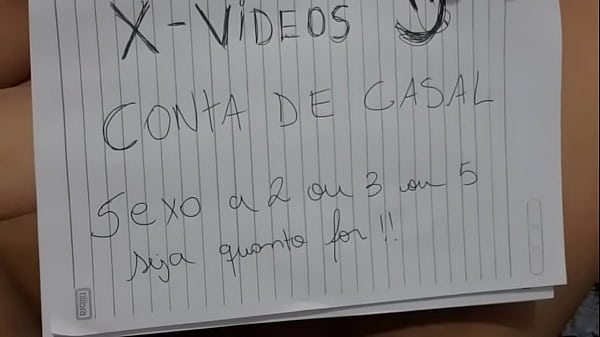 X-VIDEOS
CONTA DE CASAL
Sexo a 2 ou 3 ou 5
seja quanto for!!
tilibra